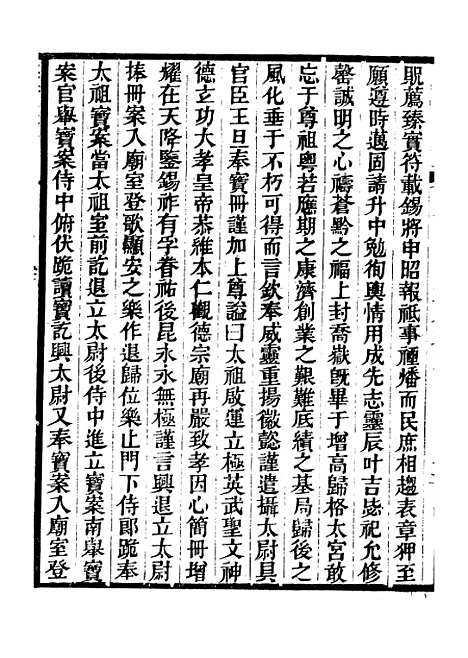 貺薦臻寳符載錫將申昭報祗事禋燔而民庶相趨表章狎至
願遵時邁固請升中勉徇輿情用成先志靈辰叶吉毖祀允修
罄誠明之心禱蒼黔之福上封喬嶽旣畢于增高歸格太宮敢
忘于尊祖粵若應期之康濟創業之艱難底績之基局歸後之
風化垂于不朽可得而言欽奉威靈重揚徽懿謹遣攝太尉具
官臣王旦奉寶冊謹加上尊謚曰太祖啟運立極英武聖文神
德立功大孝皇帝恭維本仁觀德宗廟再嚴致孝因心簡冊增
耀在天降鑒錫祚有字春祐後昆永永無極謹言興退立太尉
捧冊案入廟室登歌顯安之樂作退歸位樂止門下侍郎跪奉
太祖寶案當太祖室前訖退立太尉後侍中進立寶案南舉寶
案官舉寶案侍中俯伏跪讀寶訖興太尉又奉寶案入廟室登